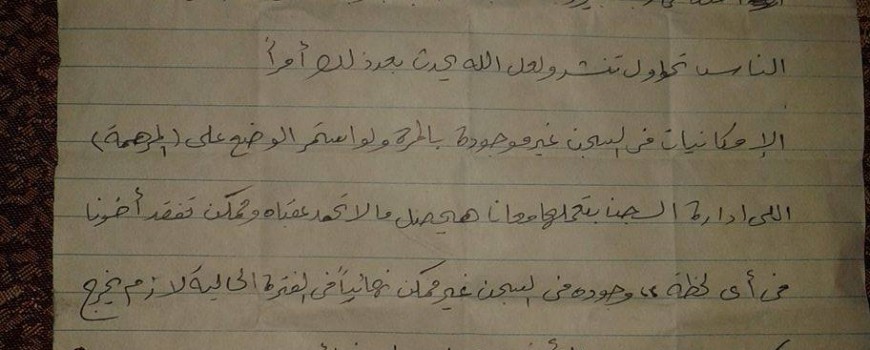 الناس تحاول تنشر ولعل الله يحدث بعد ذلك أمراً
الإمكانيات فى السجن غير موجودة بالمرة ولو استمر الوضع على (المرهمة)
اللى ادارة السجن بتعملها معانا هيحصل ما لا تحمد عقباه وممكن نفقد أخونا
فى أى لحظة ،، وجوده فى السجن غير ممكن نهائياً فى الفترة الحالية لازم يخرج